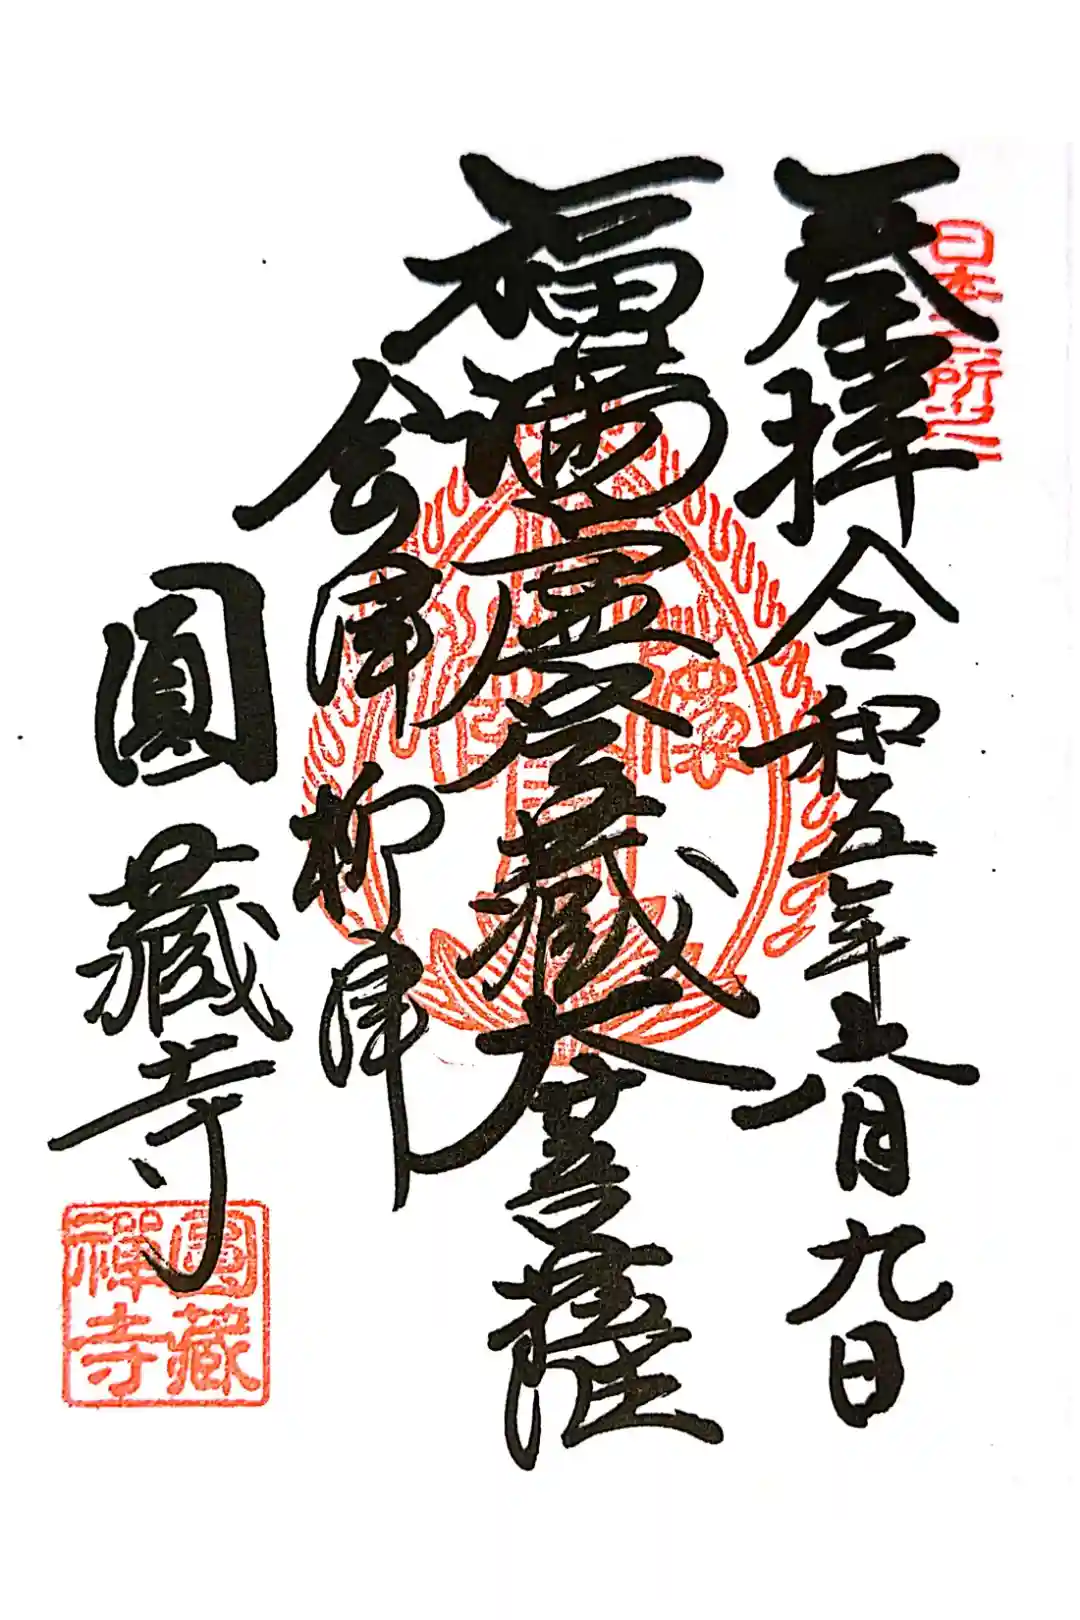 日本三所之一
奉拝 令和五年 月九日
福満虚空藏大菩薩
会津 柳津
圓藏寺
圓藏
禅寺